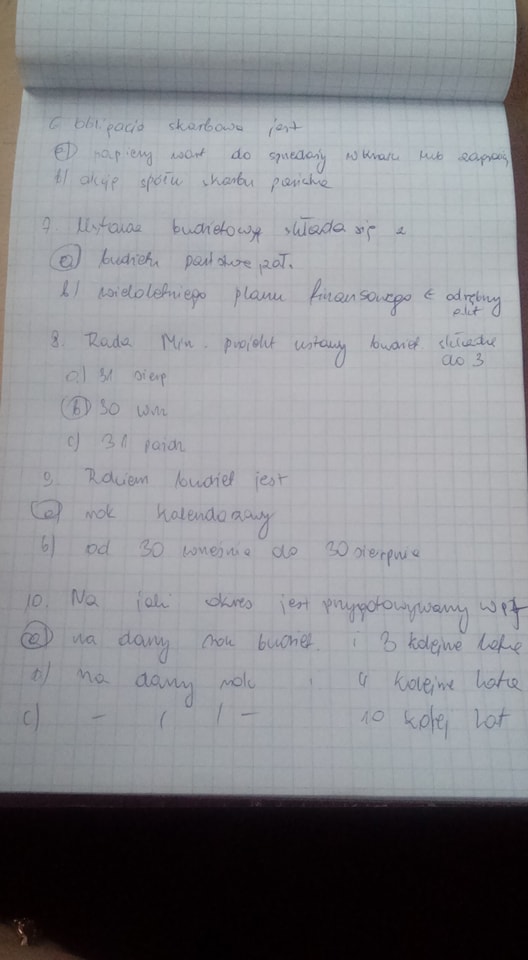 6 Obligacja skarbowa jest
a) papiery wart do sprzedaży w kraju lub zagranicą
b) akcje spółki skarbu państwa
7. Ustawa budżetowa składa się z
a) budżetu państwa, zał.
b) wieloletniego planu finansowego ← odrębny
akt
8. Rada Min. projekt ustawy budżet składa
do 3
a) 31 sierp
b) 30 wrz
c) 31 paźdz
9. Rokiem budżet jest
a) rok kalendarzowy
b) od 30 września do 30 sierpnia
10. Na jaki okres jest przygotowywany WPF
a) na dany rok budżet. i 3 kolejne lata
b) na dany rok i 4 kolejne lata
c) – ( / – 10 kolej lat